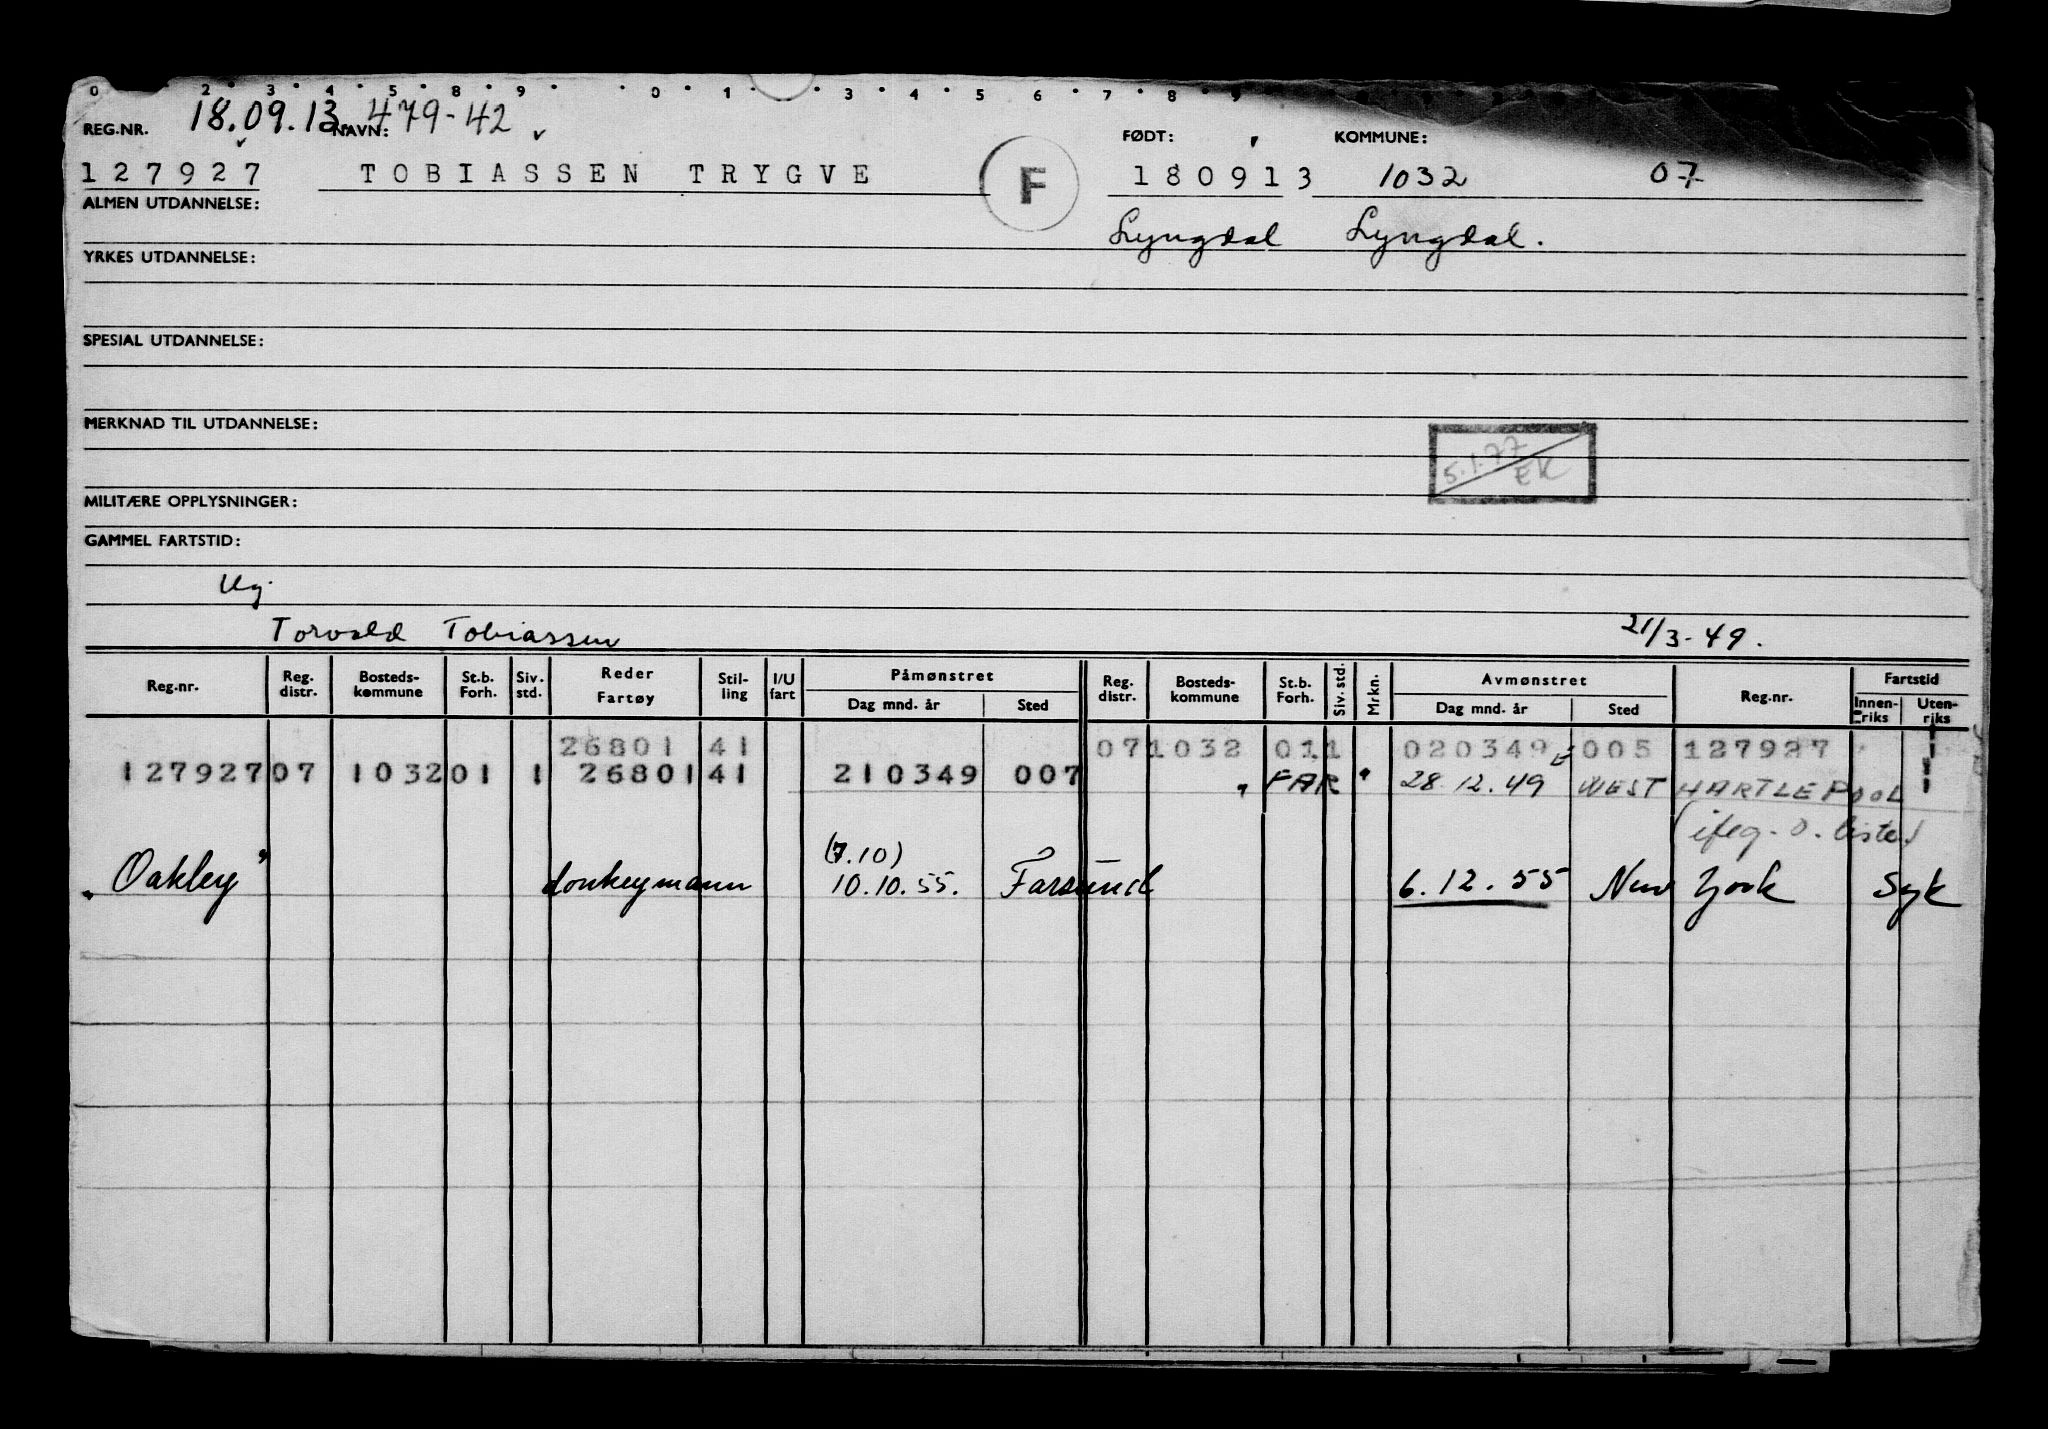 0 2 3 4 5 8 9 0 1 3 4 5 6 7 8 9
18.09.13. 479-42
REG.NR. NAVN: FØDT: KOMMUNE:
127927 TOBIASSEN TRYGVE F 180913 1032 07
ALMEN UTDANNELSE: Lyngdal Lyngdal.
YRKES UTDANNELSE:
SPESIAL UTDANNELSE:
MERKNAD TIL UTDANNELSE:
5.1.77 EK
MILITÆRE OPPLYSNINGER:
GAMMEL FARTSTID:
Torvald Tobiassen 21/3-49.
Reg.nr. Reg. distr. Bosteds-kommune St.b. Forh. Siv. std. Reder Fartøy Stil-ling I/U fart Påmønstret Dag mnd. år Sted Reg. distr. Bosteds-kommune St.b. Forh. Siv. std. Mrkn. Avmønstret Dag mnd. år Sted Reg.nr. Fartstid Innen-riks Uten-riks
26801 41 07 1032 01 1 020349 005 127927
127927 07 1032 01 1 26801 41 210349 007 "FAR" 28.12.49 WEST HARTLEPOOL
(ifлg. o. liste)
(7.10)
"Oakley" donkeymann 10.10.55. Farsund 6.12.55 New York Syk